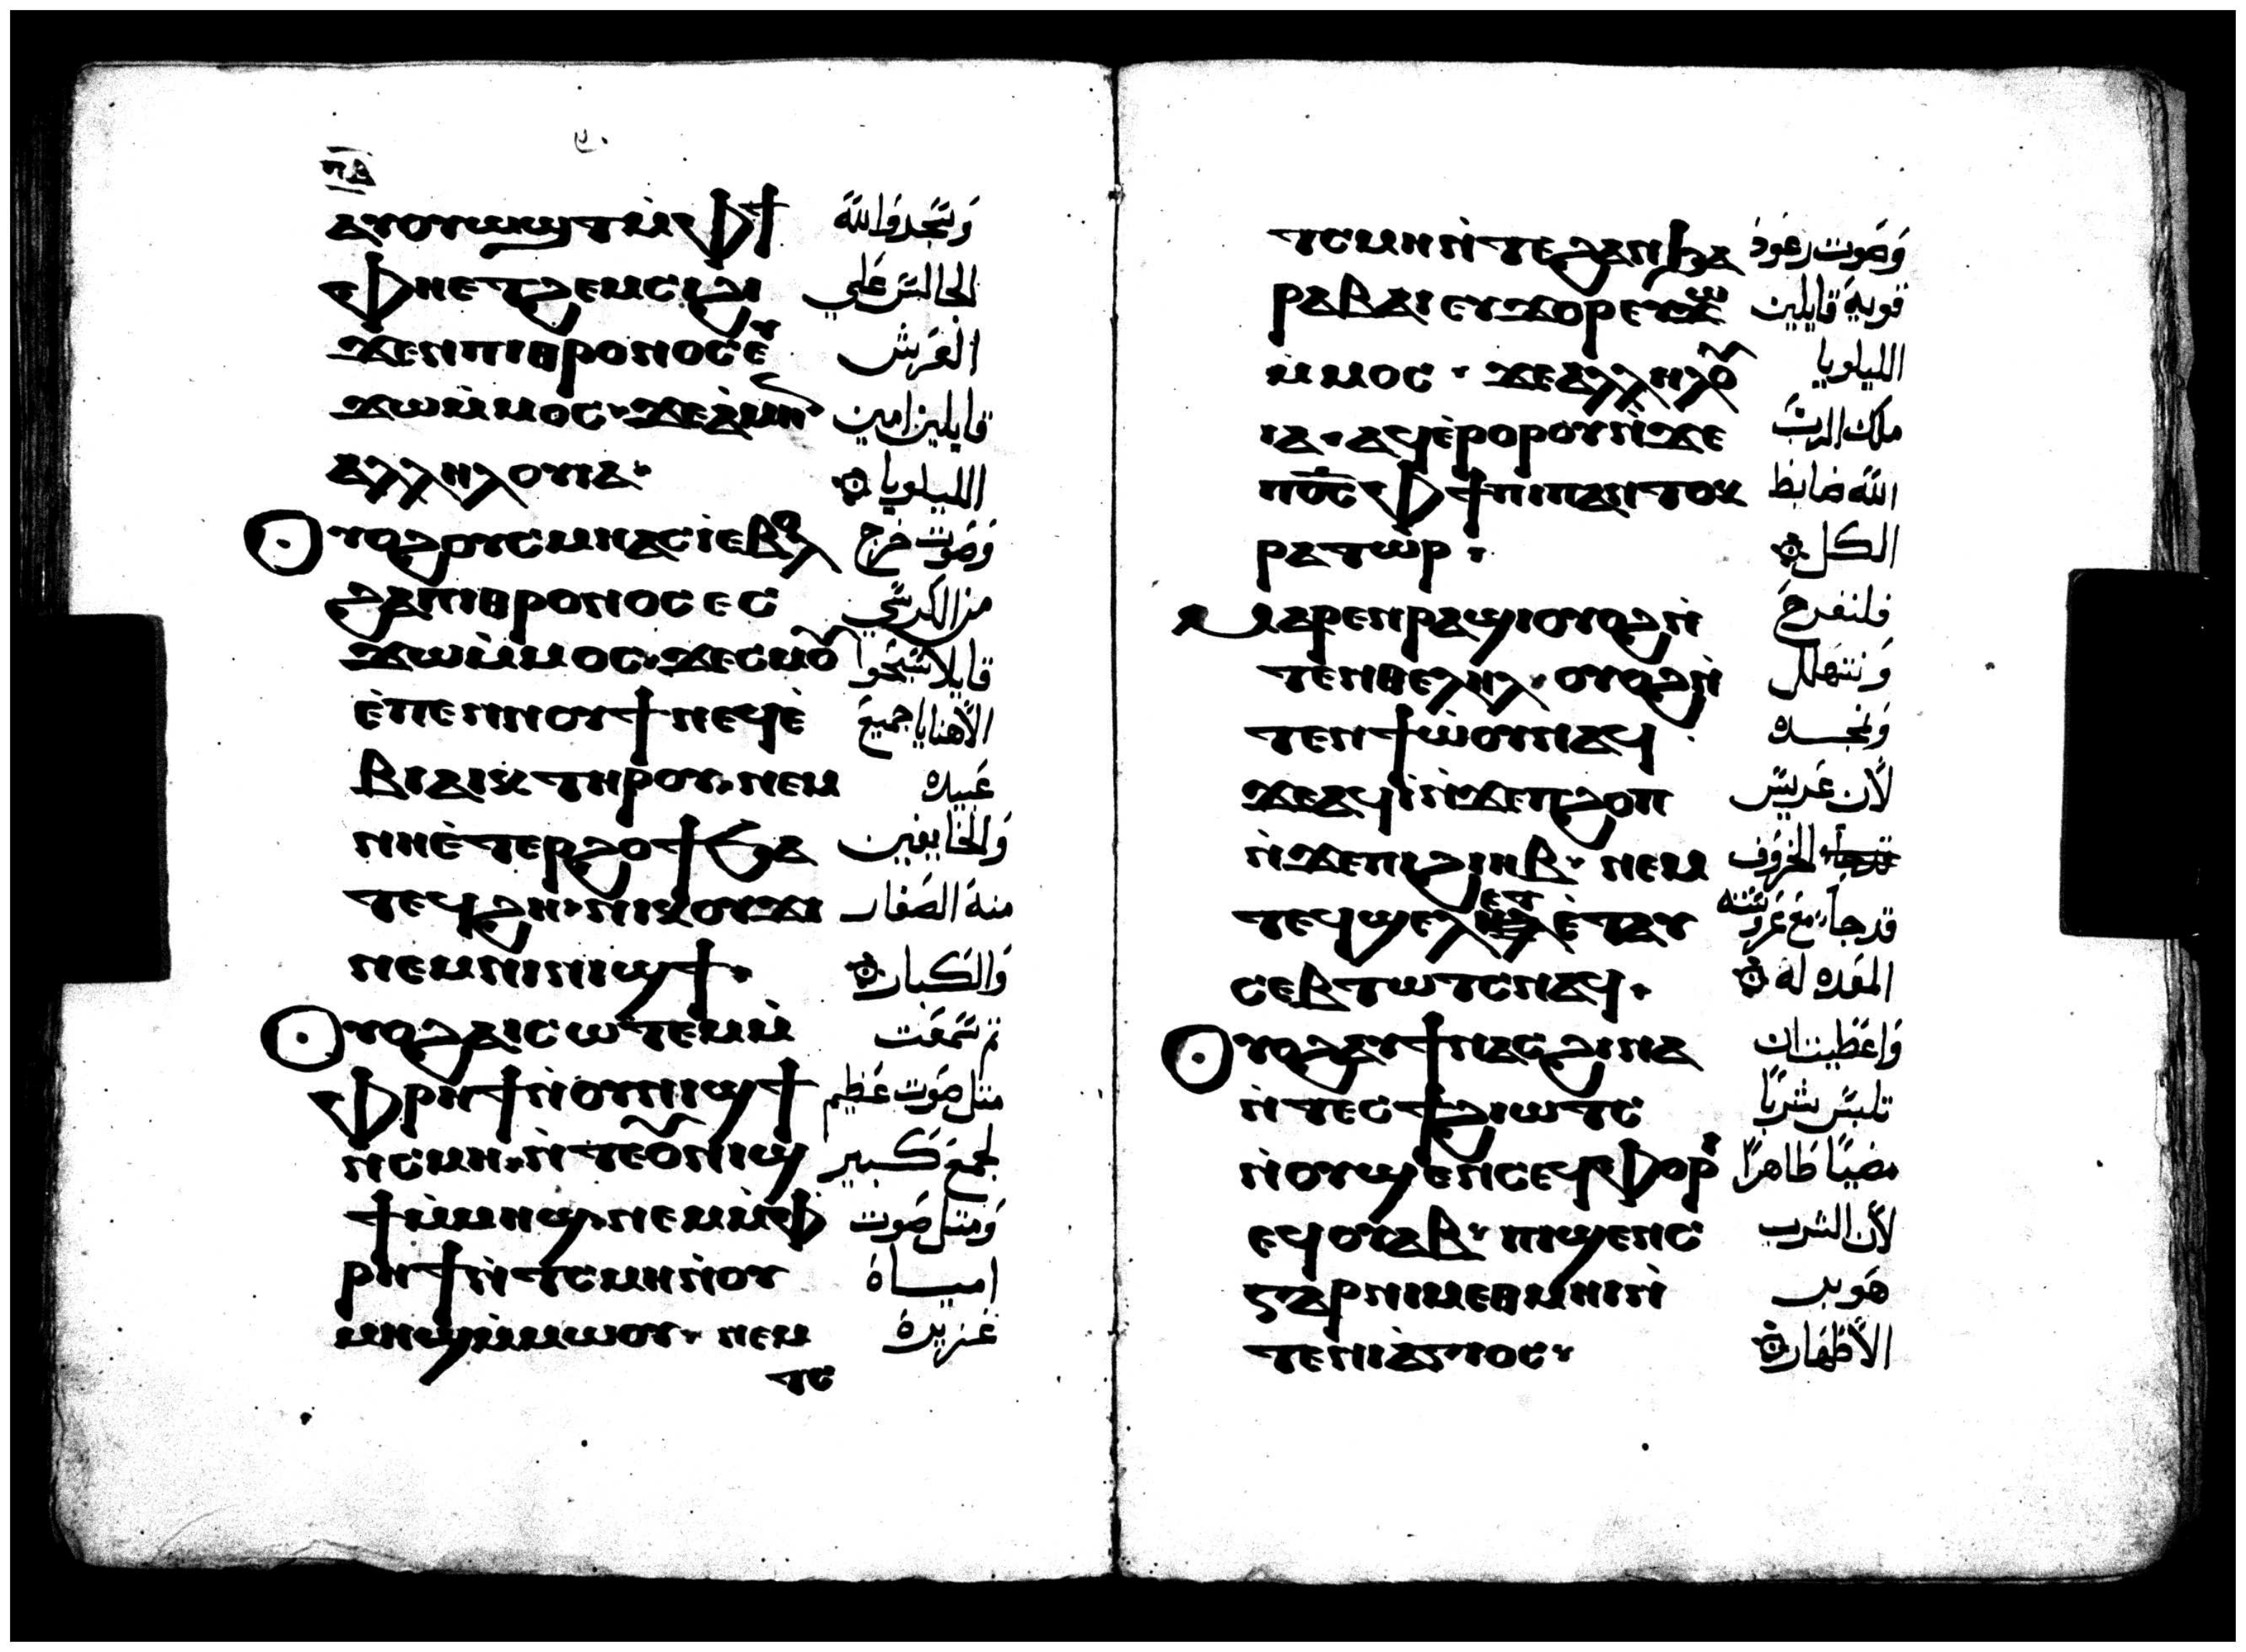 ⲡⲁ
ⲁⲩⲟⲩⲱϣⲧ ⲙ̀ⲫϯ وَسَجَدوا لله
ⲫⲏⲉⲧϩⲉⲙⲥⲓ ϩⲓ الجالسَ عَلي
ϫⲉⲛ ⲡⲓⲑⲣⲟⲛⲟⲥ ⲉⲩ العَرَش
ϫⲱ ⲙ̀ⲙⲟⲥ ϫⲉ ⲁ̀ⲙⲏⲛ قايلين امين
ⲁⲗⲗⲏⲗⲟⲩⲓⲁ الليلويا
ⲟⲩⲟϩ ⲟⲩⲥⲙⲏ ⲁⲥⲓ̀ ⲉⲃⲟⲗ وَصَوت خرج
ϩⲁ ⲡⲓⲑⲣⲟⲛⲟⲥ ⲉⲥ من الكرسَي
ϫⲱ ⲙ̀ⲙⲟⲥ ϫⲉ ⲥⲙⲟⲩ قايلا سَبحوا
ⲉ̀ⲡⲉⲛⲛⲟⲩϯ ⲛⲉϥⲉ̀ الاهنا يا جميعَ
ⲃⲓⲁⲓⲕ ⲧⲏⲣⲟⲩ ⲛⲉⲙ عَبيده
ⲛⲏⲉ̀ⲧⲉⲣϩⲟϯ ϧⲁ وَالخايفين
ⲧⲉϥϩⲏ ⲛⲓⲕⲟⲩϫⲓ منهَ الصَغار
ⲛⲉⲙ ⲛⲓⲛⲓϣϯ وَالكبار
ⲟⲩⲟϩ ⲁⲓⲥⲱⲧⲉⲙ ⲙ̀ ثم سَمَعَت
ⲫⲣⲏϯ ⲛ̀ⲟⲩⲛⲓϣϯ مثل صَوت عَظيم
ⲛ̀ⲥⲙⲏ ⲛ̀ⲧⲉ ⲟⲩⲛⲓϣ لجمعَ كَبير
ϯ ⲙ̀ⲙⲏϣ ⲛⲉⲙ ⲙ̀ⲫ وَمثل صَوت
ⲣⲏϯ ⲛ̀ⲧⲥⲙⲏ ⲛ̀ⲟⲩ امياة
ⲙⲏϣ ⲙ̀ⲙⲱⲟⲩ ⲛⲉⲙ غزيرة
ⲧⲥ
ⲧⲥⲙⲏ ⲛ̀ⲧⲉ ϩⲁⲛϧⲁ وَصَوت رعَود
ⲣⲁⲃⲁⲓ ⲉⲩϫⲟⲣ ⲉⲩϫⲱ قويهَ قايلين
ⲙ̀ⲙⲟⲥ ϫⲉ ⲁⲗⲗⲏⲗⲟⲩ الليلويا
ⲓⲁ ⲁϥⲉ̀ⲣⲟⲩⲣⲟ ⲛ̀ϫⲉ ملك الرب
ⲡⲟ̅ⲥ̅ ⲫϯ ⲡⲓⲡⲁⲛⲧⲟⲕ الله ضابط
ⲣⲁⲧⲱⲣ الكل
ⲙⲁⲣⲉⲛⲣⲁϣⲓ ⲟⲩⲟϩ ⲛ̀ فلنفرحَ
ⲧⲉⲛⲑⲉⲗⲏⲗ ⲟⲩⲟϩ ⲛ̀ وَنتهَلل
ⲧⲉⲛϯⲱ̀ⲟⲩ ⲛⲁϥ وَنمجده
ϫⲉ ⲁϥⲓ̀ ⲛ̀ϫⲉ ⲡϩⲟⲡ لان عَريس
ⲛ̀ϫⲉ ⲡⲓϩⲓⲏⲃ ⲛⲉⲙ الخروَف
ⲧⲉϥϣⲉⲗⲉⲧ ⲉ̀ⲧⲁⲩ قد جا مَعَ عَروَسَته
ⲥⲉⲃⲧⲱⲧⲥ ⲛⲁϥ المعَده لهَ
ⲟⲩⲟϩ ⲁⲩϯ ⲛⲁⲥ ϩⲓⲛⲁ وَاعَطيت ان
ⲛ̀ⲧⲉⲥϯ ϩⲓⲱⲧⲥ تلبسَ شربًا
ⲛ̀ⲟⲩϣⲉⲛⲥ ⲉϥⲫⲟⲣⲓ مضيًا طاهرًا
ⲉϥⲟⲩⲁⲃ ⲡⲓϣⲉⲛⲥ لان الشرب
ⲅⲁⲣ ⲛⲓⲙⲉⲑⲙⲏⲓ ⲛ̀ هَو بر
ⲧⲉ ⲛⲓⲁ̀ⲅⲓⲟⲥ الاطهَار